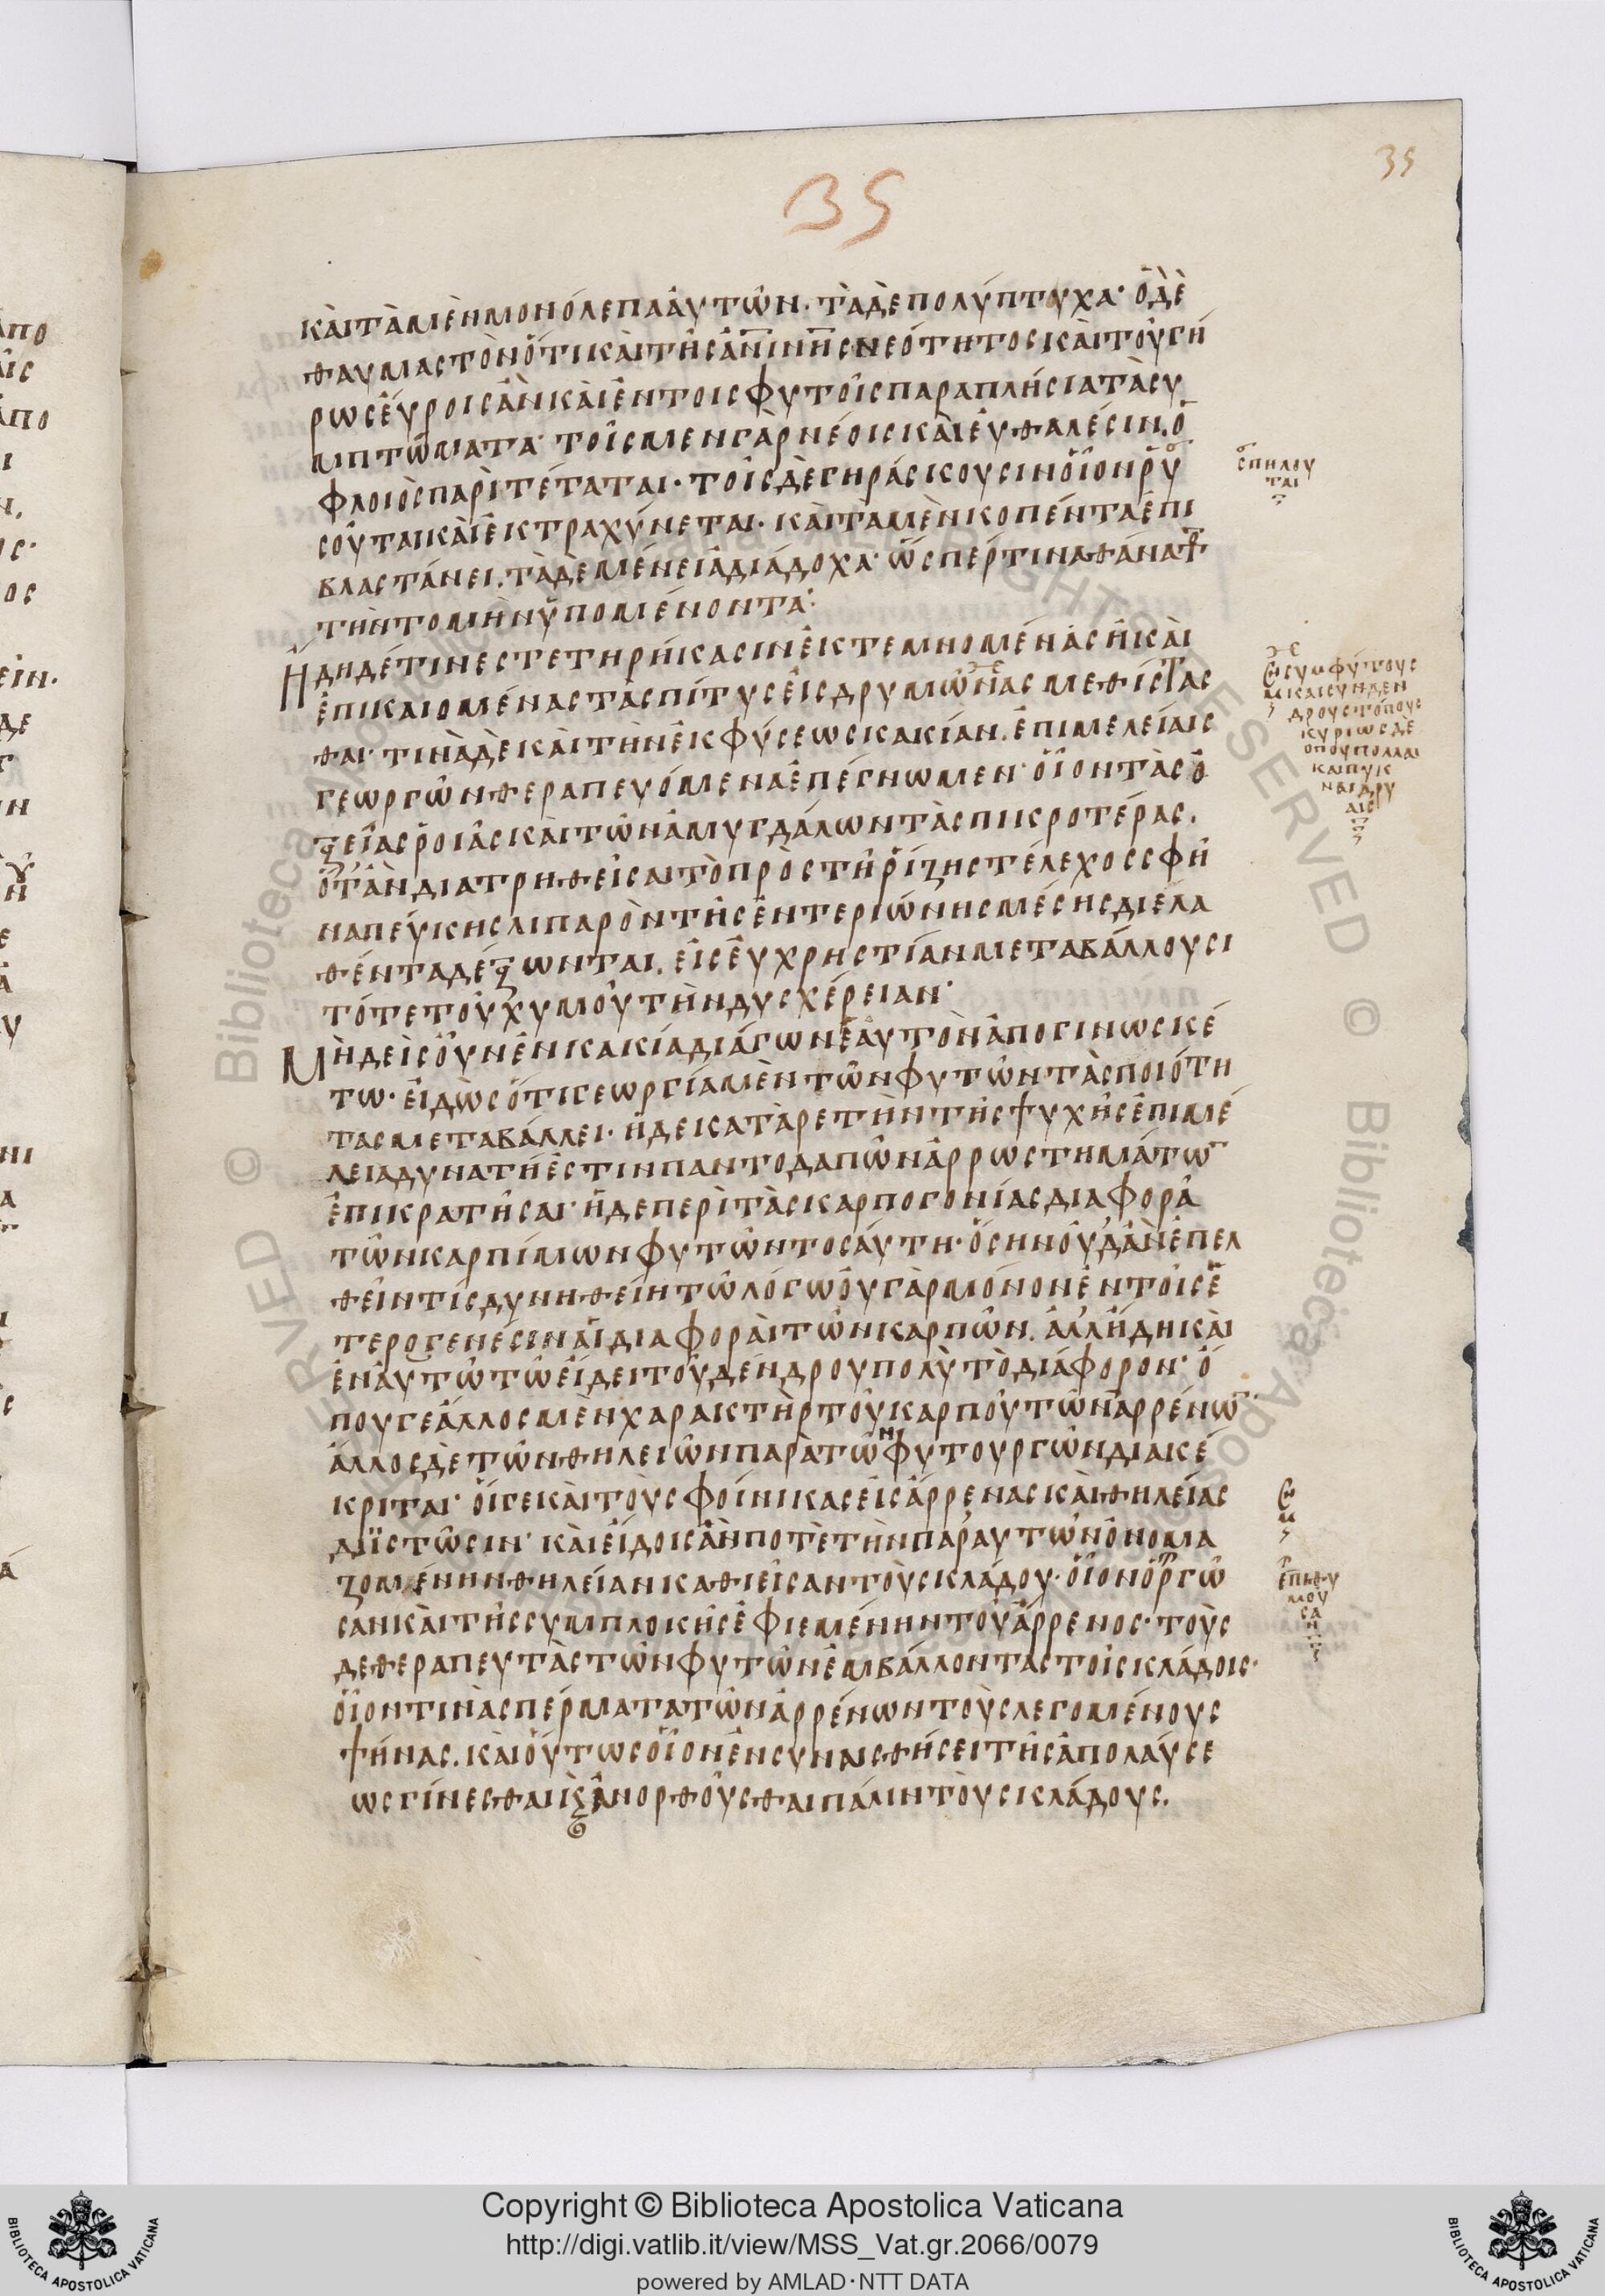 35
35
κὰι τὰ μὲν μονόλεπα ἀυτῶν· τὰ δὲ πολύπτυχα· ὃ δὲ
θαυμαστὸν ὅτι κὰι τῆς ἀν̅ι̅νη̅ς νεότητος κὰι τοῦ γή
ρως ἑύροις ἂν κὰι ἐν τοις φυτοῖς παραπλήσια τὰ συ
μπτώματα· τοῖς μεν γὰρ νέοις κὰι ἐυθαλέσιν. ὁ
φλοιὸς παρϊτέταται· τοῖς δὲ γηράσκουσιν οἷον ῥυ
σοῦται κὰι ἐκτραχύνεται· κὰι τὰ μὲν κοπέντα ἐπι
βλαστάνει. τὰ δὲ μένει ἀδιάδοχα· ὥσπέρ τινα θάνατ
τὴν τομὴν ὑπομένοντα·
Ἤδη δέ τινες τετηρήκασιν ἐκτεμνομένας ἢ κὰι
ἐπικαιομένας τὰς πίτυς ἐις δρυμῶνας μεθίστας
θαι· τινὰ δὲ κὰι τὴν ἐκ φύσεως κακίαν. ἐπιμελείαις
γεωργῶν θεραπευόμενα ἐπέγνωμεν· οἷον τὰς ὀ
ξείας ῥοιὰς κὰι τῶν ἀμυγδάλων τὰς πικροτέρας.
ὅτὰν διατρηθεῖσαι τὸ πρὸς τῆ ῥίζη στέλεχος σφῆ
να πεύκης λιπαρὸν τῆς ἐντεριώνης μέσης διελα
θέντα δέξωνται. ἐις ἐυχρηστίαν μεταβάλλουσι
τότε τοῦ χυμοῦ τὴν δυσχέρειαν·
Μὴδεὶς οὖν ἐν κακία διάγων ἑαυτὸν ἀπογινωσκέ
τω· ἐιδὼς ὅτι γεωργία μὲν τῶν φυτῶν τὰς ποιότη
τας μεταβάλλει· ἡ δε κατ ἀρετὴν τῆς ψυχῆς ἐπιμέ
λεια δυνατή ἐστιν παντοδαπῶν ἀρρωστημάτω̅
ἐπικρατῆσαι· ἡ δε περὶ τὰς καρπογονίας διαφορὰ
τῶν καρπίμων φυτῶν τοσάυτη· ὅσην ὀυδ ἂν ἐπελ
θεῖν τίς δυνηθείη τῶ λόγω ὀυ γὰρ μόνον ἐν τοῖς ἑ
τερογενέσιν ἅι διαφορὰι τῶν καρπῶν. ἀλλ ἤδη κὰι
ἐν ἀυτῶ τῶ ἐίδει τοῦ δένδρου πολὺ τὸ διάφορον· ὅ
που γε ἄλλος μὲν χαρακτὴρ τοῦ καρποῦ τῶν ἀρρένω̅·
ἄλλος δὲ τῶν θηλειῶν παρὰ τῶν φυτουργῶν διακέ
κριται· ὅι γε κὰι τοὺς φοίνικας ἐις ἄρρενας κὰι θηλείας
διϊστῶσιν· κὰι ἐίδοις ἄν ποτὲ τὴν παρ ἀυτῶν ὀνομα
ζομένην θηλείαν καθιεῖσαν τοὺς κλάδου· οἷον ὀργῶ
σαν κὰι τῆς συμπλοκῆς ἐφιεμένην τοῦ ἄρρενος· τοὺς
δε θεραπευτὰς τῶν φυτῶν ἐμβάλλοντας τοῖς κλάδοις·
οἷόν τινὰ σπέρματα τῶν ἀρρένων τοὺς λεγομένους
ψήνας. κὰι οὕτως οἷον ἐν συναισθήσει τῆς ἀπολάυσε
ως γίνεσθαι ϗ ἀνορθοῦσθαι πάλιν τοὺς κλάδους.
σπηλου
ται
συμφύτους
κ συνδεν
δρους τόπους
κυρίως δὲ
οπου πολλαι
και πυκ
ναι δρυ
αις
επιθυ
μου
σα
ν
Copyright © Biblioteca Apostolica Vaticana
http://digi.vatlib.it/view/MSS_Vat.gr.2066/0079
powered by AMLAD·NTT DATA